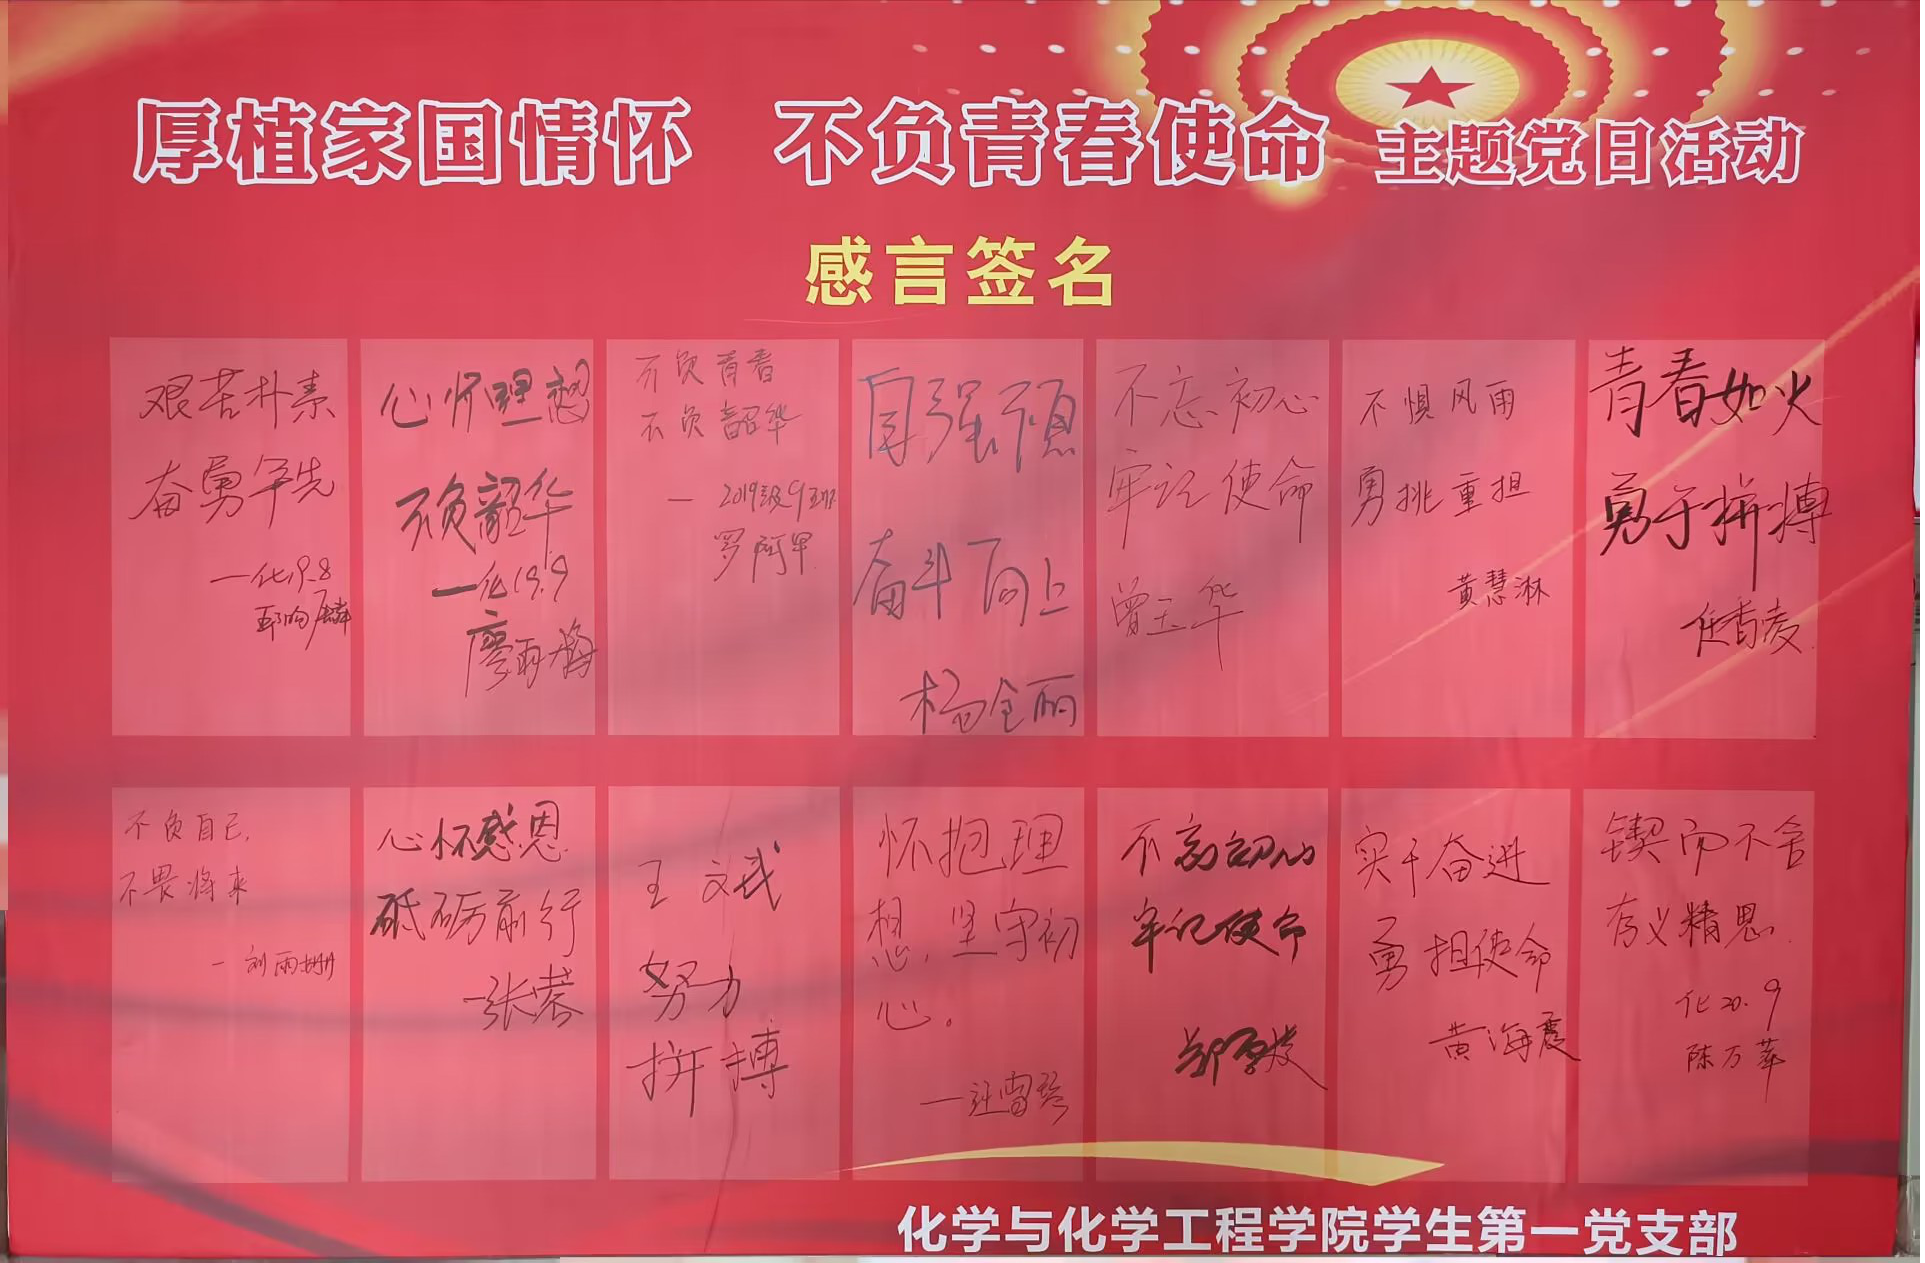 厚植家国情怀 不负青春使命 主题党日活动
感言签名
艰苦朴素
奋勇争先
—化19.8
心怀理想
不负韶华
—化19.9
廖雨梅
不负青春
不负韶华
— 2019级9班
罗阿甲
自强不息
奋斗向上
杨全丽
不忘初心
牢记使命
曾玉华
不惧风雨
勇挑重担
黄慧淋
青春如火
勇于拼搏
任香凌
不负自己,
不畏将来
— 刘雨姗
心怀感恩
砥砺前行
—张蓉
王文武
努力
拼搏
怀抱理
想,坚守初
心。
不忘初心
牢记使命
实干奋进
勇担使命
黄海霞
锲而不舍
存义精思
化20.9
陈万苹
化学与化学工程学院学生第一党支部